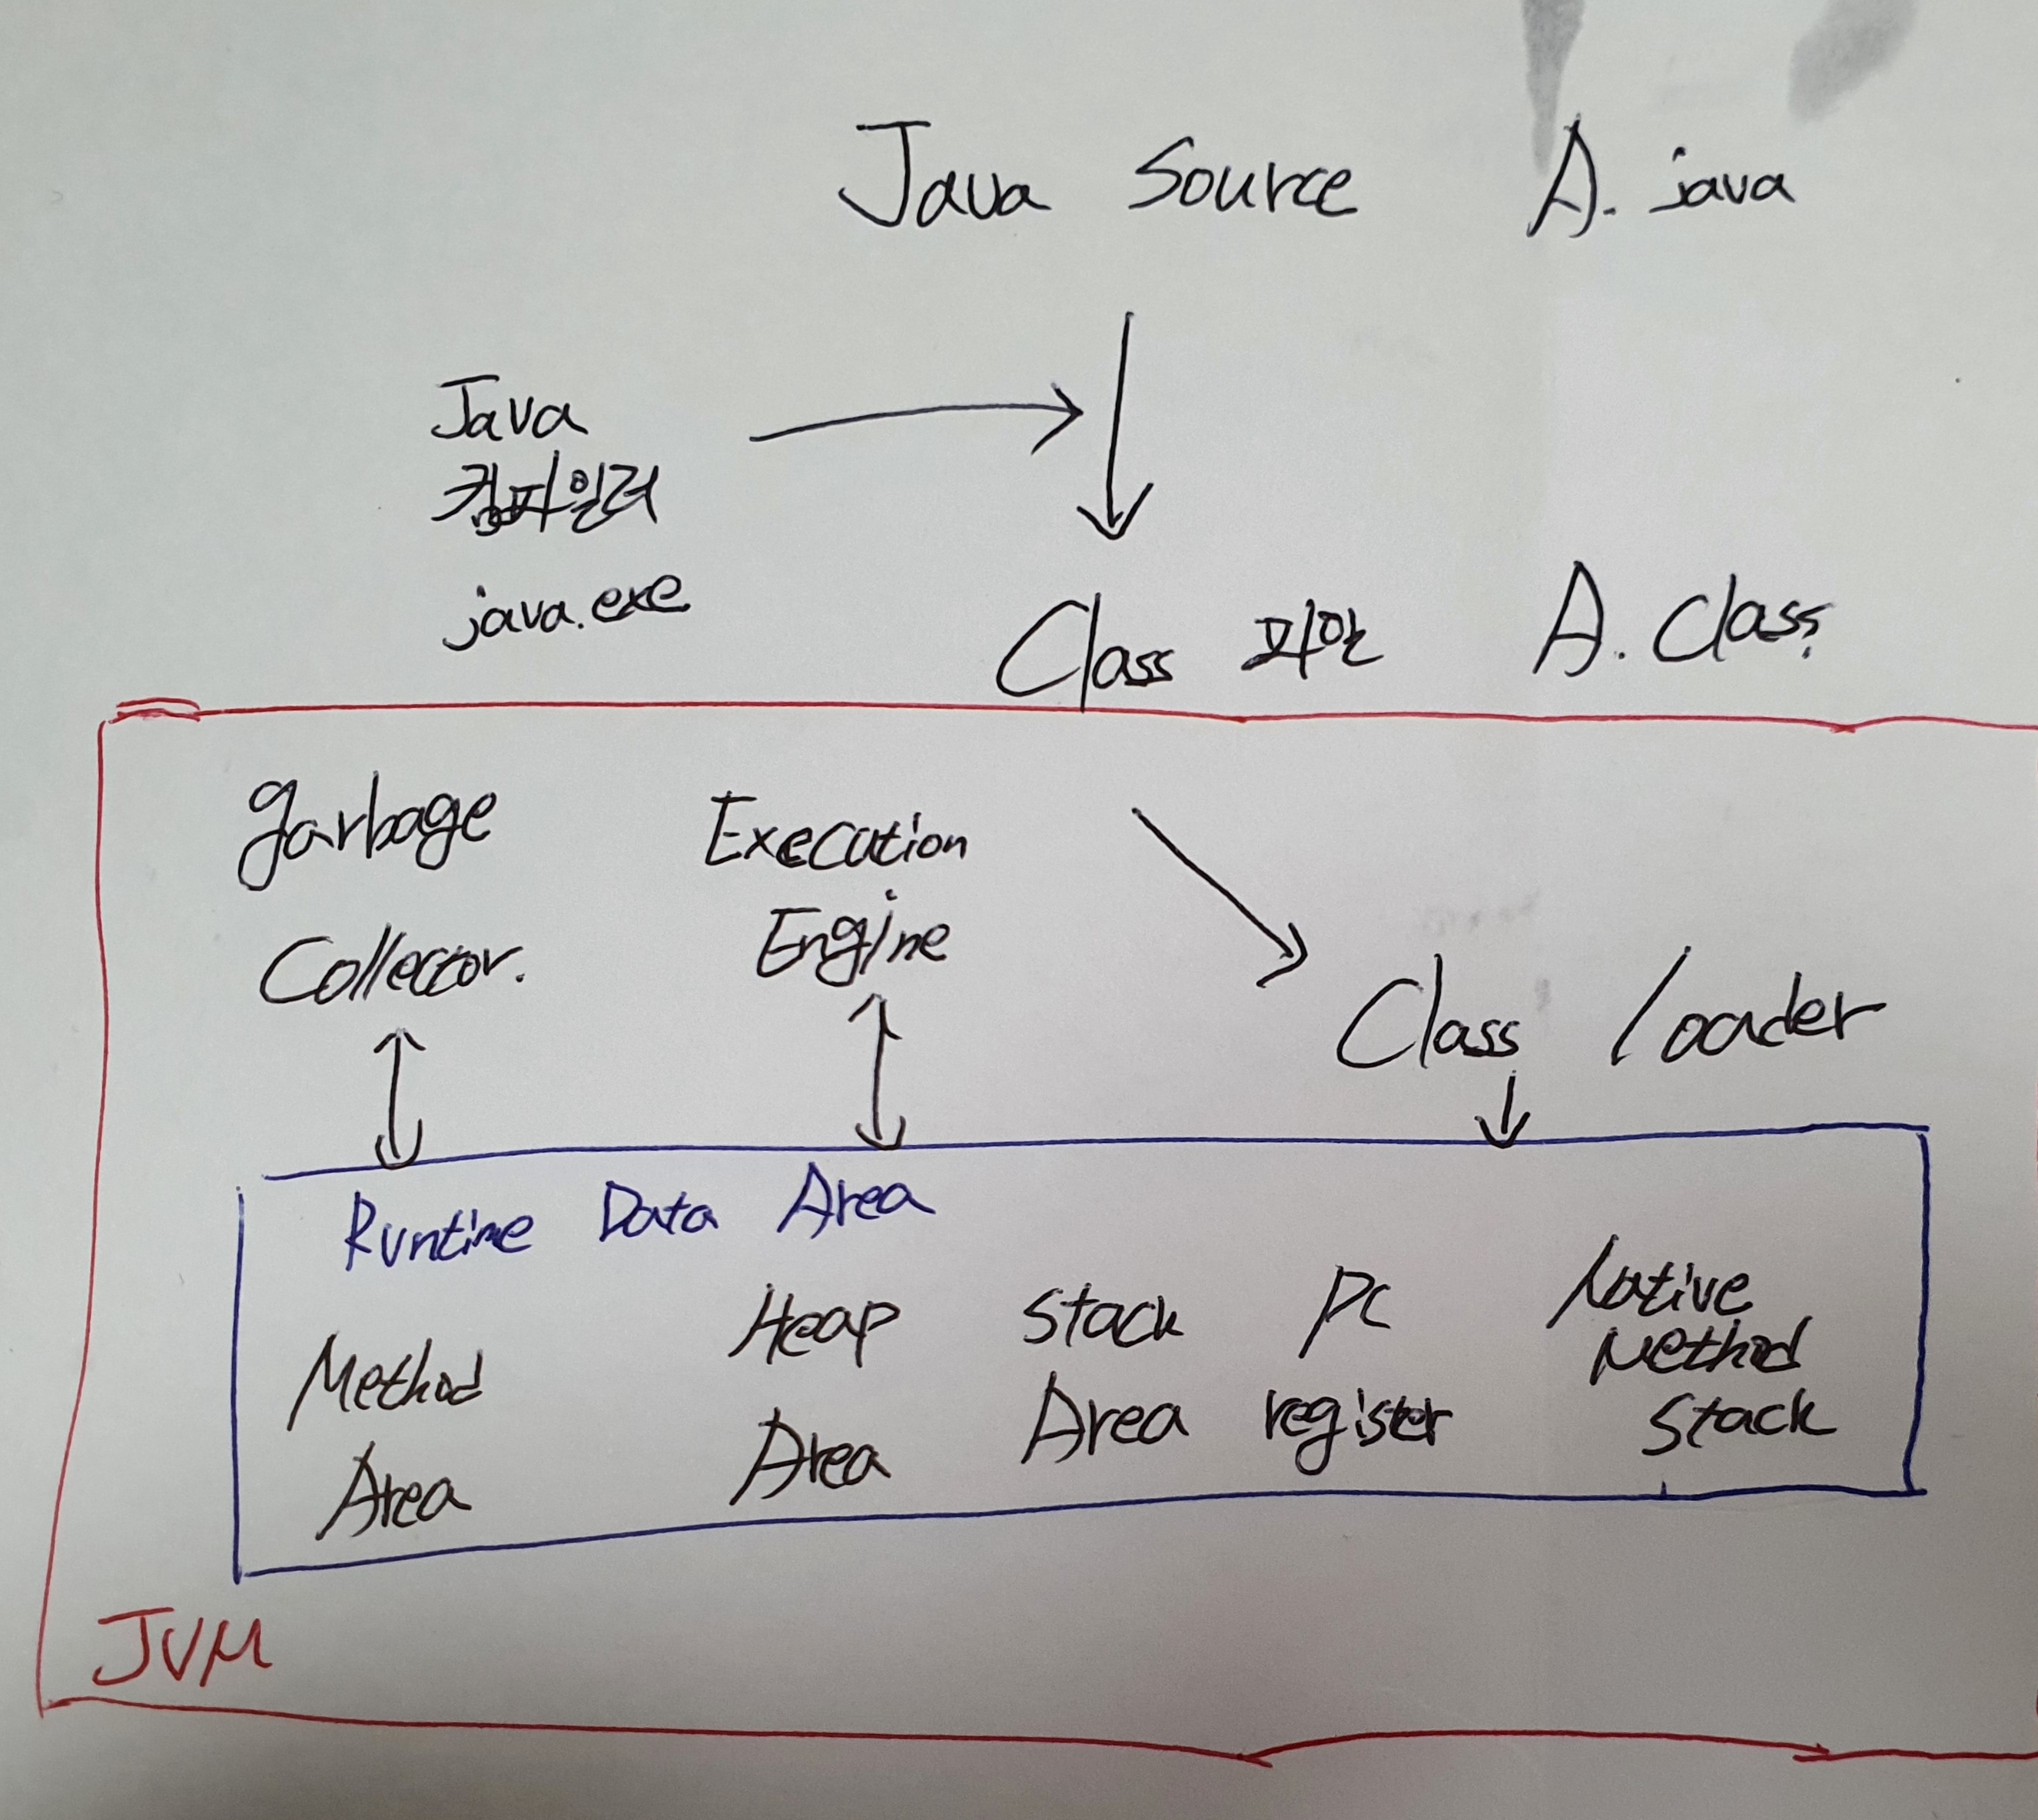 Java Source A. java
Java
컴파일러
java.exe
Class 파일 A. Class
garbage
Collector.
Execution
Engine
Class loader
Runtime Data Area
Method
Area
Heap
Area
Stack
Area
PC
register
Native
Method
Stack
JVM